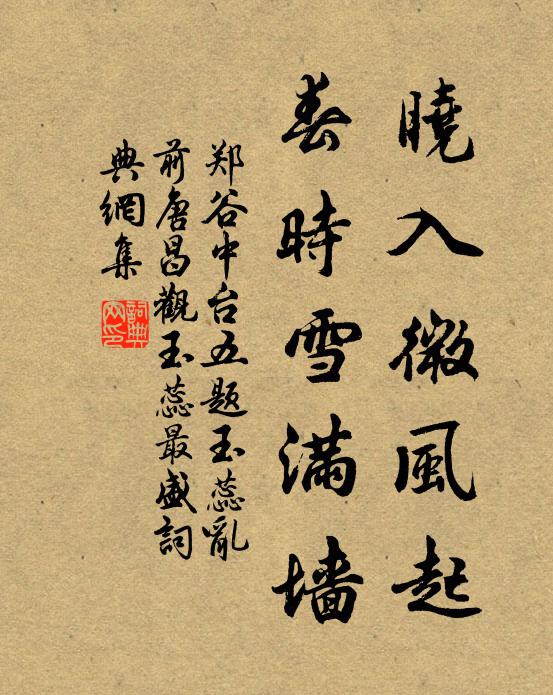 曉入微風起
春時雪滿墙
郑谷中台五题玉蕊亂
前唐昌觀玉蕊最盛詞
典網集
詞典
网印